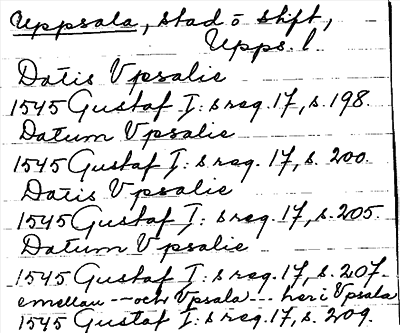 Uppsala, stad o stift,
Upps. l.
Datis Vpsalie
1545 Gustaf I: s reg. 17, s. 198.
Datum Vpsalie
1545 Gustaf I: s reg. 17, s. 200.
Datis Vpsalie
1545 Gustaf I: s reg. 17, s. 205.
Datum Vpsalie
1545 Gustaf I: s reg. 17, s. 207.
emellan -- och Vpsala --- her i Vpsala
1545 Gustaf I: s reg. 17, s. 209.